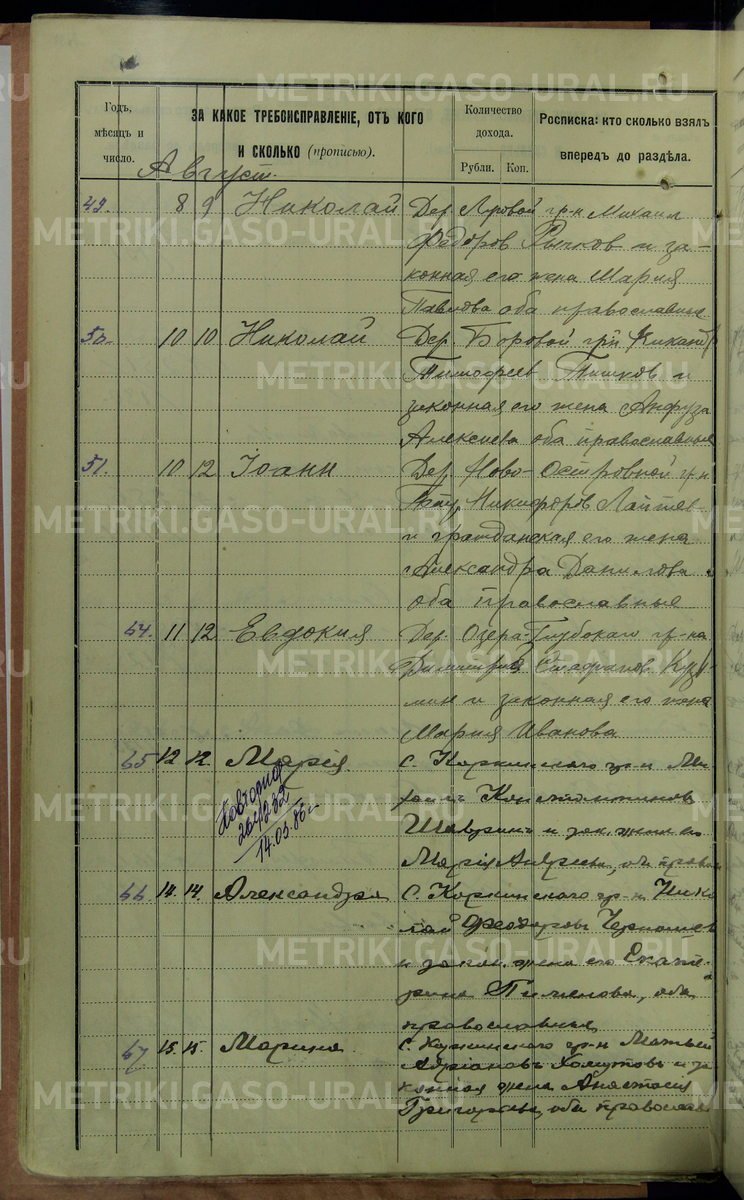 METRIKI.GASO-URAL.RU
Годъ, мѣсяцъ и число.
ЗА КАКОЕ ТРЕБОИСПРАВЛЕНІЕ, ОТЪ КОГО И СКОЛЬКО (прописью).
Количество дохода.
Рубли. Коп.
Росписка: кто сколько взялъ впередъ до раздѣла.
Август.
49. 8 9 Николай Дер. гр-н Михаил
Федоров Рычков и за-
конная его жена Мария
Павлова оба православные
50. 10 10 Николай Дер. Боровой гр-н
Тимофеев и
законная его жена Анфуза
Алексеева оба православные
51. 10 12 Іоанн Дер. Ново-Островной гр-н
Никифоров
и гражданская его жена
Александра Данилова
оба православные
64. 11 12 Евдокия Дер. Озера-Глубокаго гр-на
Димитрия Стафанов Кузь-
мин и законная его жена
Мария Иванова
65. 12 12. Марія С. Коркинского гр-н Ми-
хаилъ Константиновъ
и зак. жена его
Марія Андреева, об. правос
Повторная
14.03.86 г.
66. 14. 14. Александра С. Коркинского гр-н Нико
лай Феодоровъ
и закон. жена его Екате-
рина Пименова, оба
православныя
67 15. 15. Марина С. Коркинского гр-н Матвей
Адріановъ Хомутовъ и за
конная жена Анастасия
Григорьева, оба православ